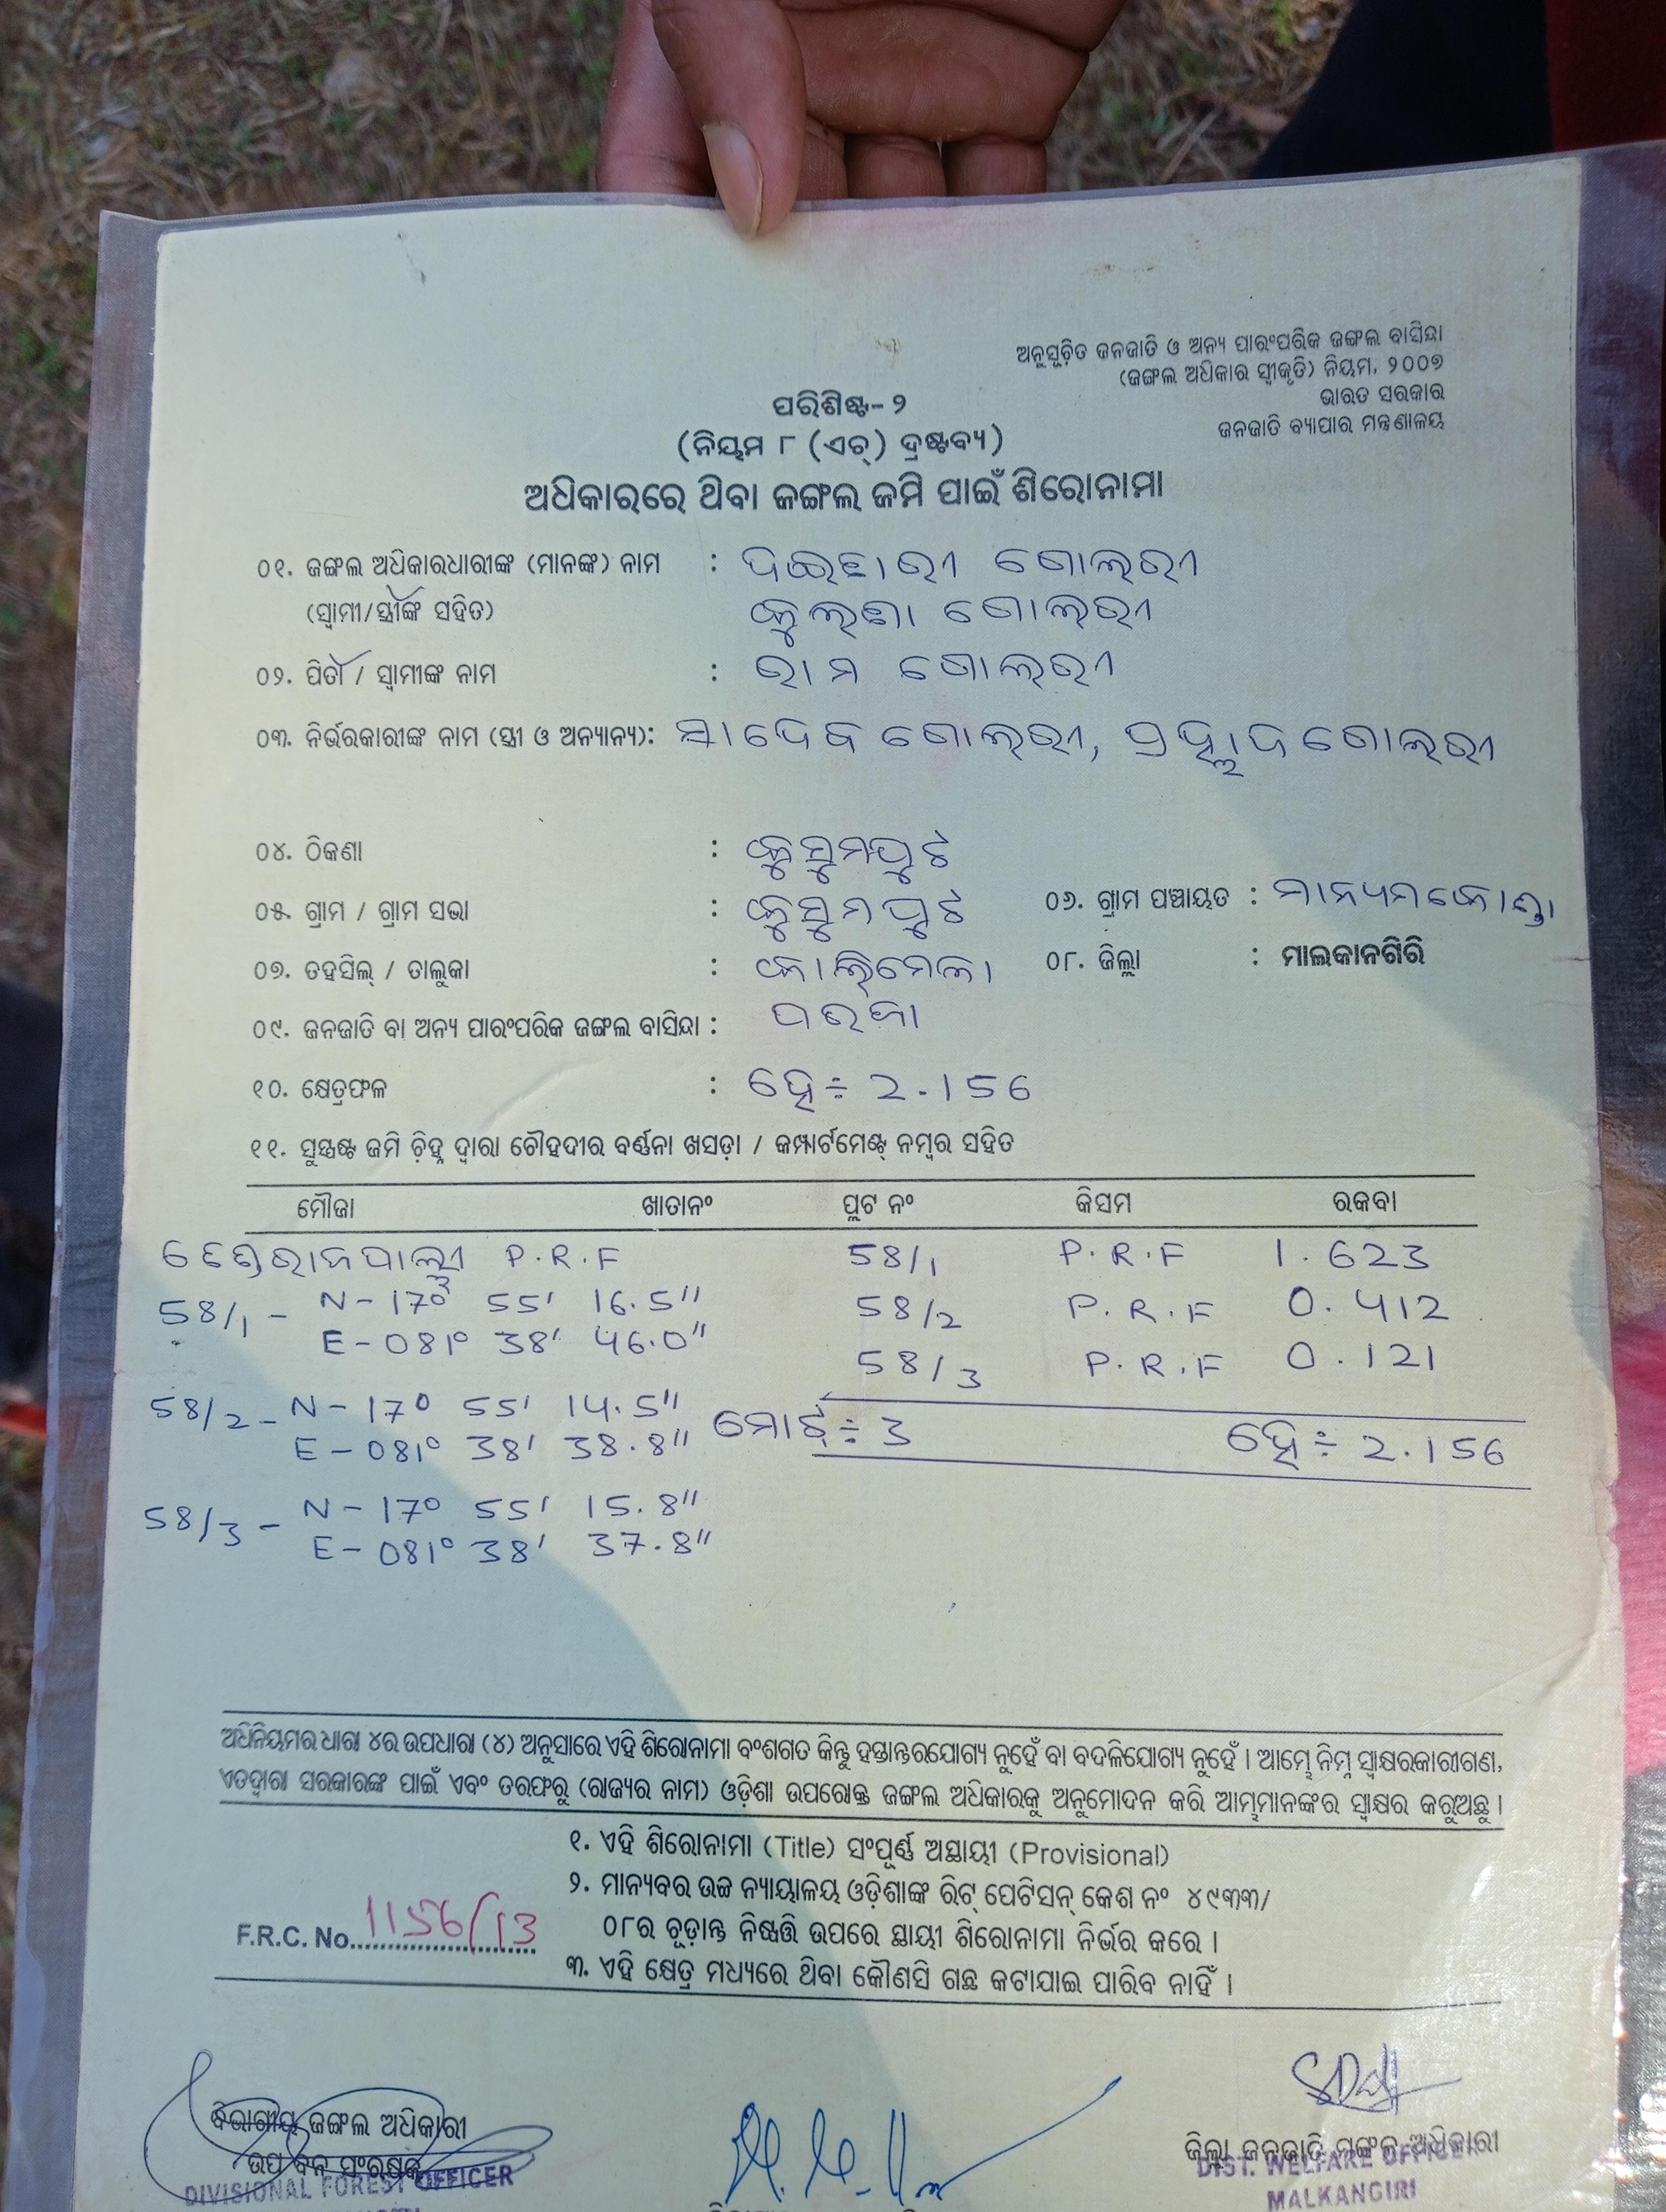 ଅନୁସୂଚିତ ଜନଜାତି ଓ ଅନ୍ୟ ପାରଂପରିକ ଜଙ୍ଗଲ ବାସିନ୍ଦା
(ଜଙ୍ଗଲ ଅଧିକାର ସ୍ୱୀକୃତି) ନିୟମ, ୨୦୦୭
ଭାରତ ସରକାର
ଜନଜାତି ବ୍ୟାପାର ମନ୍ତ୍ରଣାଳୟ
ପରିଶିଷ୍ଟ- ୨
(ନିୟମ ୮ (ଏଚ୍) ଦ୍ରଷ୍ଟବ୍ୟ)
ଅଧିକାରରେ ଥିବା ଜଙ୍ଗଲ ଜମି ପାଇଁ ଶିରୋନାମା
୦୧. ଜଙ୍ଗଲ ଅଧିକାରଧାରୀଙ୍କ (ମାନଙ୍କ) ନାମ : ଗୋଲରୀ
(ସ୍ୱାମୀ/ସ୍ତ୍ରୀଙ୍କ ସହିତ) ଗୋଲରୀ
୦୨. ପିତା / ସ୍ୱାମୀଙ୍କ ନାମ : ରାମ ଗୋଲରୀ
୦୩. ନିର୍ଭରକାରୀଙ୍କ ନାମ (ସ୍ତ୍ରୀ ଓ ଅନ୍ୟାନ୍ୟ): ଗୋଲରୀ, ପ୍ରହ୍ଲାଦ ଗୋଲରୀ
୦୪. ଠିକଣା : କୁସୁମପୁଟ
୦୫. ଗ୍ରାମ / ଗ୍ରାମ ସଭା : କୁସୁମପୁଟ ୦୬. ଗ୍ରାମ ପଞ୍ଚାୟତ : ମାନ୍ୟମକୋଣ୍ଡା
୦୭. ତହସିଲ୍ / ତାଲୁକା : କାଲିମେଳା ୦୮. ଜିଲ୍ଲା : ମାଲକାନଗିରି
୦୯. ଜନଜାତି ବା ଅନ୍ୟ ପାରଂପରିକ ଜଙ୍ଗଲ ବାସିନ୍ଦା : ପରଜା
୧୦. କ୍ଷେତ୍ରଫଳ : ହେ÷ 2.156
୧୧. ସୁସ୍ପଷ୍ଟ ଜମି ଚିହ୍ନ ଦ୍ୱାରା ଚୌହଦୀର ବର୍ଣ୍ଣନା ଖସଡ଼ା / କମ୍ପାର୍ଟମେଣ୍ଟ୍ ନମ୍ବର ସହିତ
ମୌଜା ଖାତାନଂ ପ୍ଲଟ ନଂ କିସମ ରକବା
P.R.F 58/1 P.R.F 1.623
58/1 - N - 17° 55' 16.5" 58/2 P.R.F 0.412
E - 081° 38' 46.0" 58/3 P.R.F 0.121
58/2 - N - 17° 55' 14.5" ମୋଟ୍ ÷ 3 ହେ÷ 2.156
E - 081° 38' 38.8"
58/3 - N - 17° 55' 15.8"
E - 081° 38' 37.8"
ଅଧିନିୟମର ଧାରା ୪ର ଉପଧାରା (୪) ଅନୁସାରେ ଏହି ଶିରୋନାମା ବଂଶଗତ କିନ୍ତୁ ହସ୍ତାନ୍ତରଯୋଗ୍ୟ ନୁହେଁ ବା ବଦଳିଯୋଗ୍ୟ ନୁହେଁ । ଆମ୍ଭେ ନିମ୍ନ ସ୍ୱାକ୍ଷରକାରୀଗଣ,
ଏତଦ୍ୱାରା ସରକାରଙ୍କ ପାଇଁ ଏବଂ ତରଫରୁ (ରାଜ୍ୟର ନାମ) ଓଡ଼ିଶା ଉପରୋକ୍ତ ଜଙ୍ଗଲ ଅଧିକାରକୁ ଅନୁମୋଦନ କରି ଆମ୍ଭମାନଙ୍କର ସ୍ୱାକ୍ଷର କରୁଅଛୁ ।
୧. ଏହି ଶିରୋନାମା (Title) ସଂପୂର୍ଣ୍ଣ ଅସ୍ଥାୟୀ (Provisional)
୨. ମାନ୍ୟବର ଉଚ୍ଚ ନ୍ୟାୟାଳୟ ଓଡ଼ିଶାଙ୍କ ରିଟ୍ ପେଟିସନ୍ କେଶ ନଂ ୪୯୩୩/
୦୮ର ଚୂଡ଼ାନ୍ତ ନିଷ୍ପତ୍ତି ଉପରେ ସ୍ଥାୟୀ ଶିରୋନାମା ନିର୍ଭର କରେ ।
F.R.C. No. 1156/13
୩. ଏହି କ୍ଷେତ୍ର ମଧ୍ୟରେ ଥିବା କୌଣସି ଗଛ କଟାଯାଇ ପାରିବ ନାହିଁ ।
ବିଭାଗୀୟ ଜଙ୍ଗଲ ଅଧିକାରୀ
ଉପ ବନ ସଂରକ୍ଷକ
DIVISIONAL FOREST OFFICER
ଜିଲ୍ଲା ଜନଜାତି ମଙ୍ଗଳ ଅଧିକାରୀ
DIST. WELFARE OFFICER
MALKANGIRI